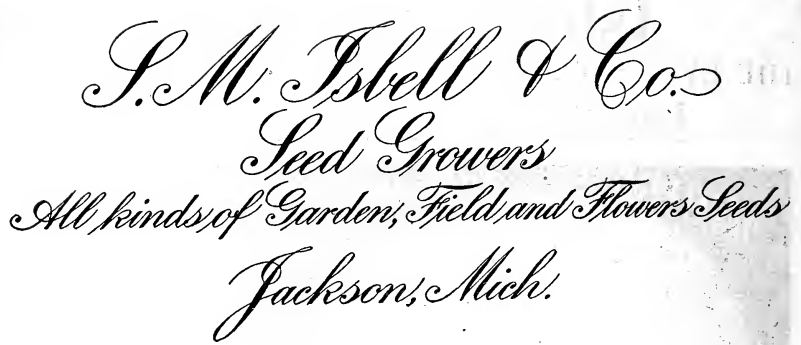 S. M. Isbell & Co.
Seed Growers
All kinds of Garden, Field and Flowers Seeds
Jackson, Mich.